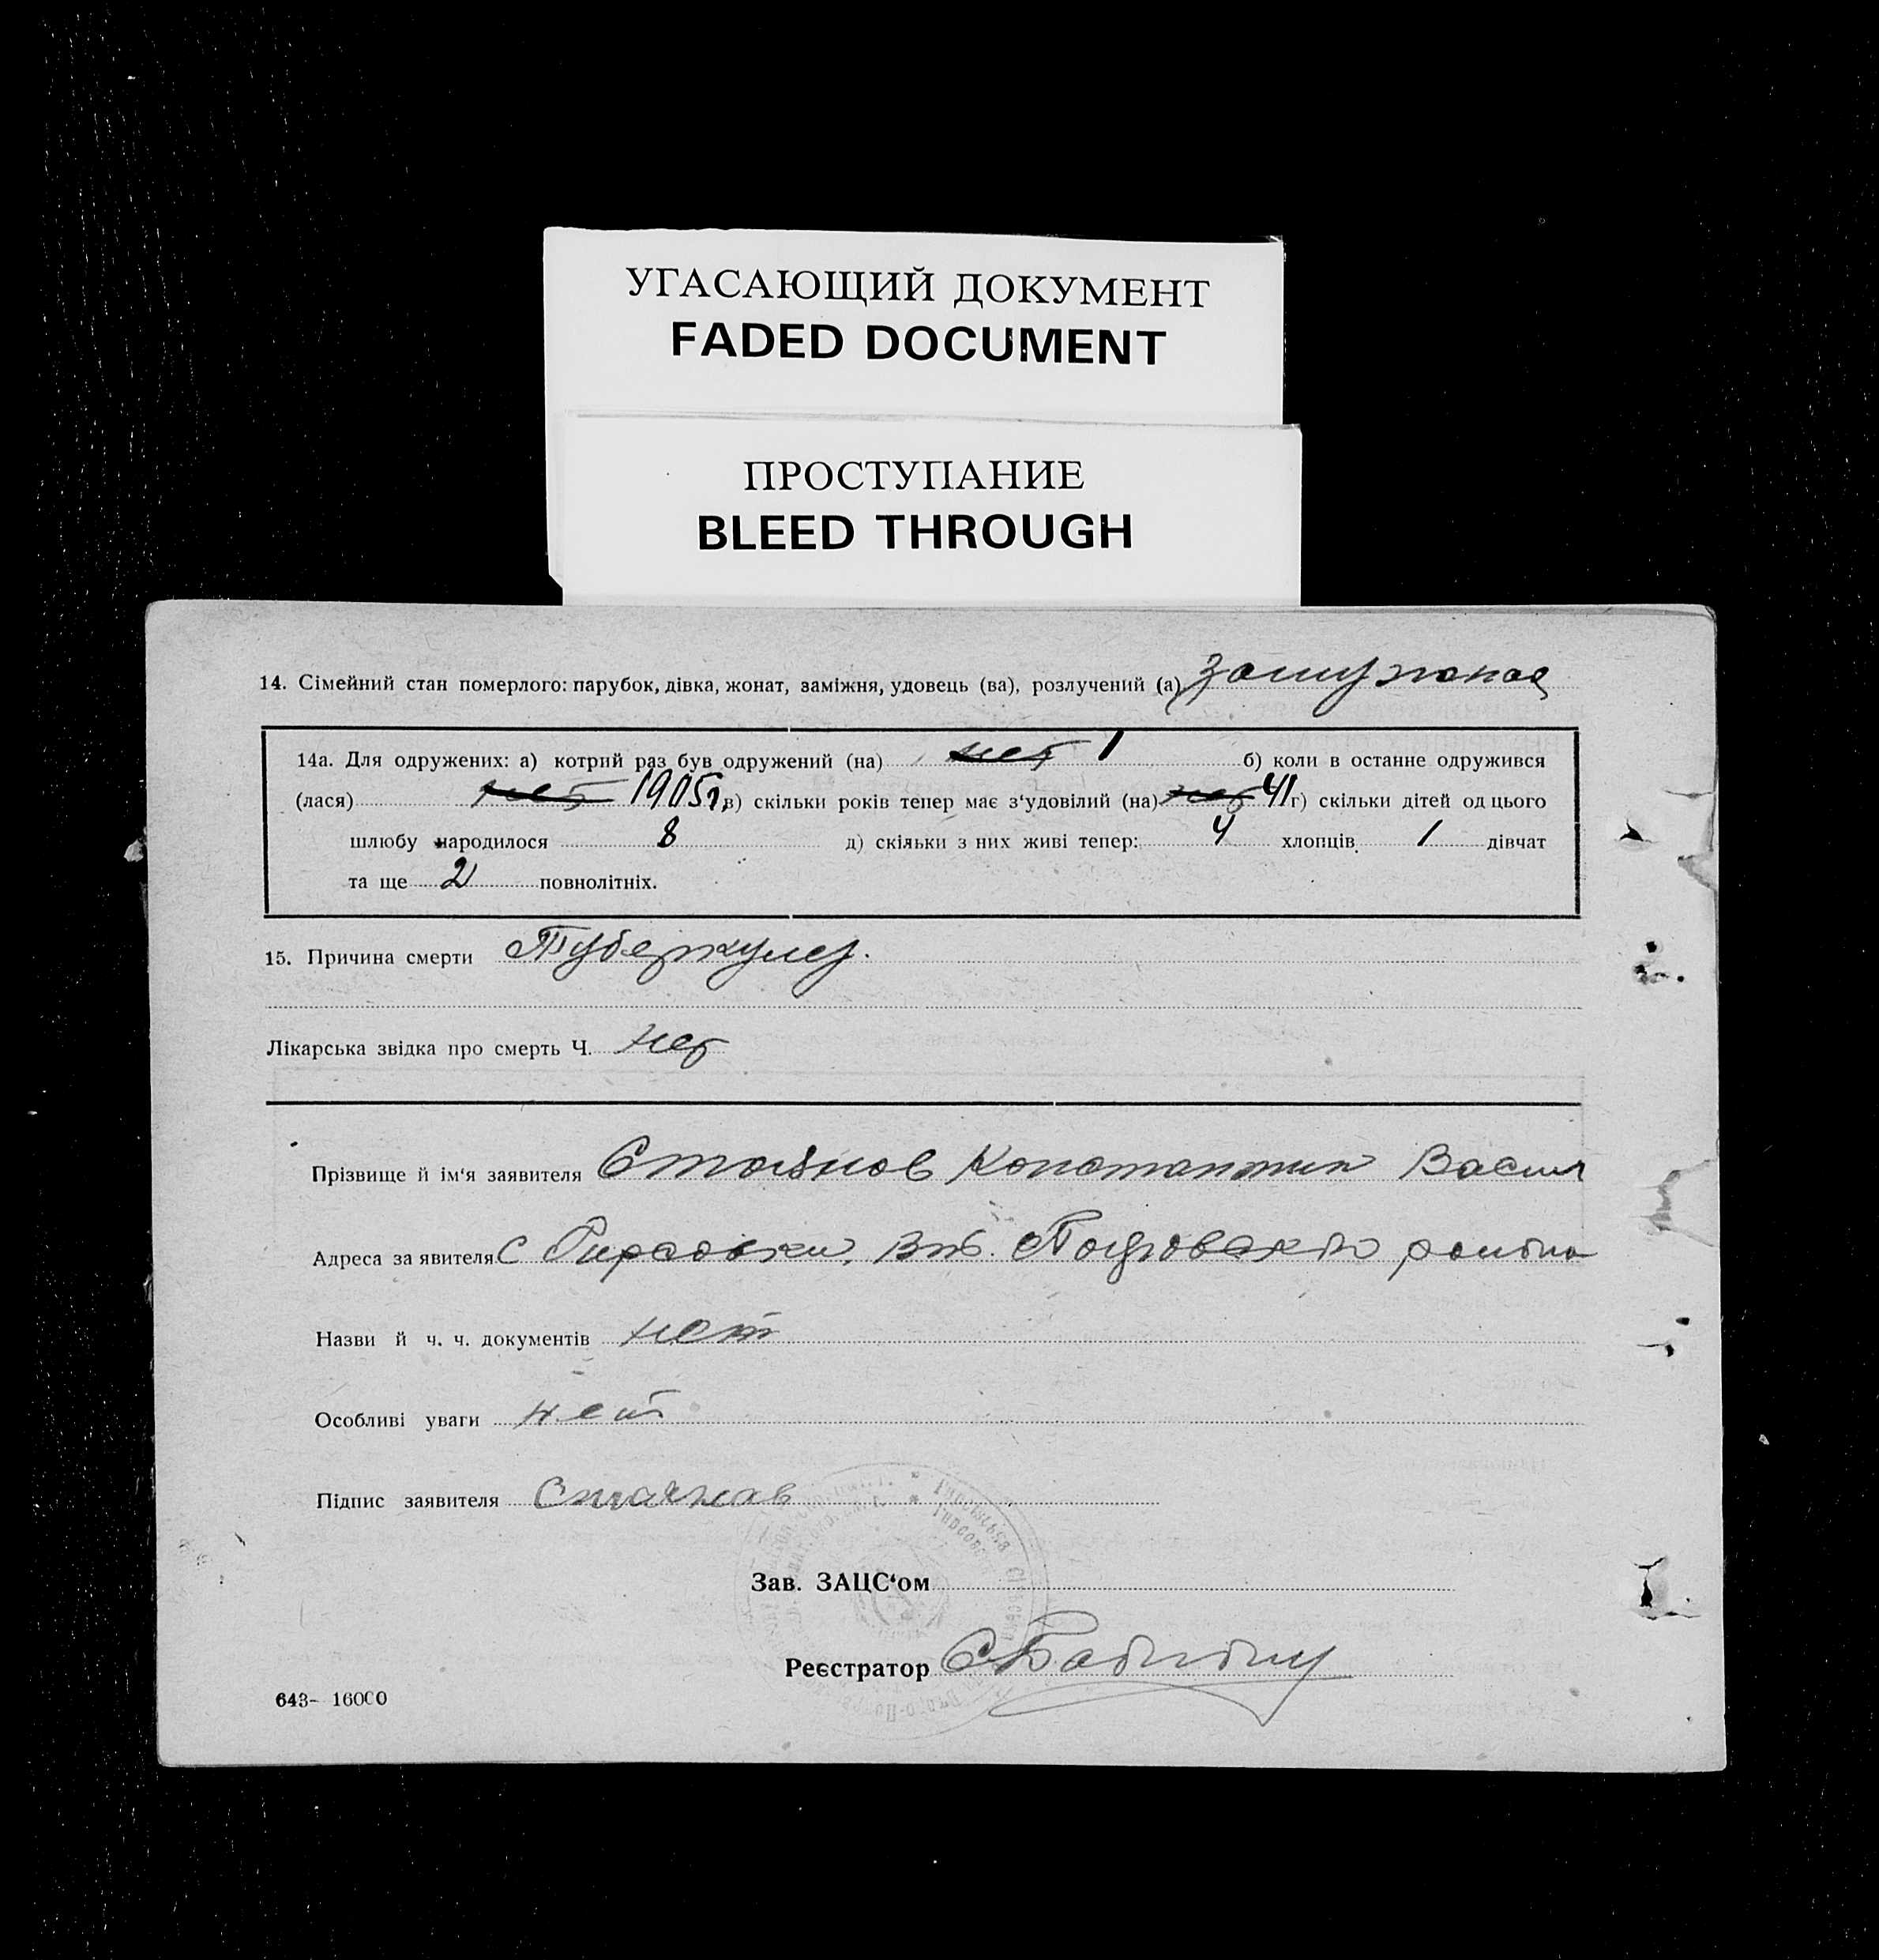 УГАСАЮЩИЙ ДОКУМЕНТ
FADED DOCUMENT
ПРОСТУПАНИЕ
BLEED THROUGH
14. Сімейний стан померлого: парубок, дівка, жонат, заміжня, удовець (ва), розлучений (а) замужная
14а. Для одружених: а) котрий раз був одружений (на) нет 1 б) коли в останне одружився
(лася) нет 1905 г. в) скільки років тепер має з‘удовілий (на) нет 41 г) скільки дітей од цього
шлюбу народилося 8 д) скільки з них живі тепер: 4 хлопців 1 дівчат
та ще 2 повнолітніх.
15. Причина смерти Туберкулез.
Лікарська звідка про смерть Ч. нет
Прізвище й ім‘я заявителя Стоянов Константин Васил
Адреса за явителя С Гирсовки, района
Назви й ч. ч. документів нет
Особливі уваги нет
Підпис заявителя Стоянов
Зав. ЗАЦС‘ом
Реєстратор
643- 16000